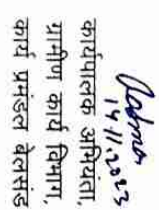 14.11.2023
कार्यपालक अभियंता,
ग्रामीण कार्य विभाग,
कार्य प्रमंडल बेलसंड